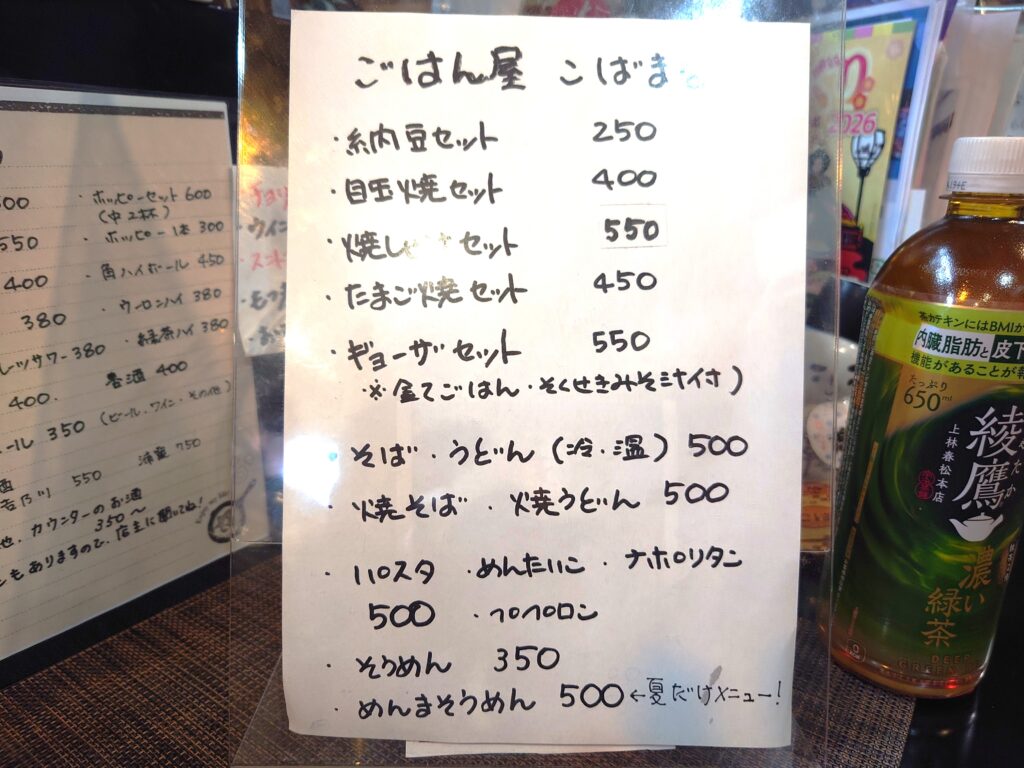 ごはん屋 こばま
・納豆セット 250
・目玉焼セット 400
・焼し セット 550
・たまご焼セット 450
・ギョーザセット 550
※全てごはん・そくせきみそ汁付)
・そば・うどん(冷・温) 500
・焼そば・焼うどん 500
・パスタ ・めんたいこ ・ナポリタン
500 ・ペペロン
・そうめん 350
・めんまそうめん 500←夏だけメニュー!
・ホッピーセット 600
(中2杯)
550 ・ホッピー1本 300
400 ・角ハイボール 450
380 ・ウーロンハイ 380
380 ・緑茶ハイ 380
400. 春酒 400
ール 350 (ビール、ワイン・その他)
550 750
カウンターのお酒
350〜
もありますので、店主に聞いてね!
2026
茶カテキンにはBMIが
内臓脂肪と皮下
機能があることが報
たっぷり
650ml
綾鷹
あやたか
上林春松本店
濃い
緑茶